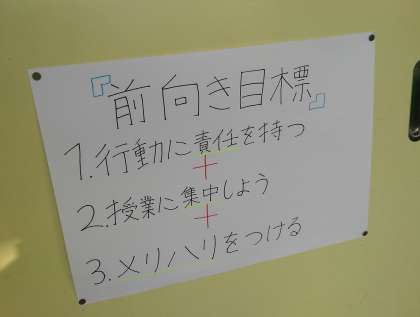 『前向き目標』
1.行動に責任を持つ
+
2.授業に集中しよう
+
3.メリハリをつける